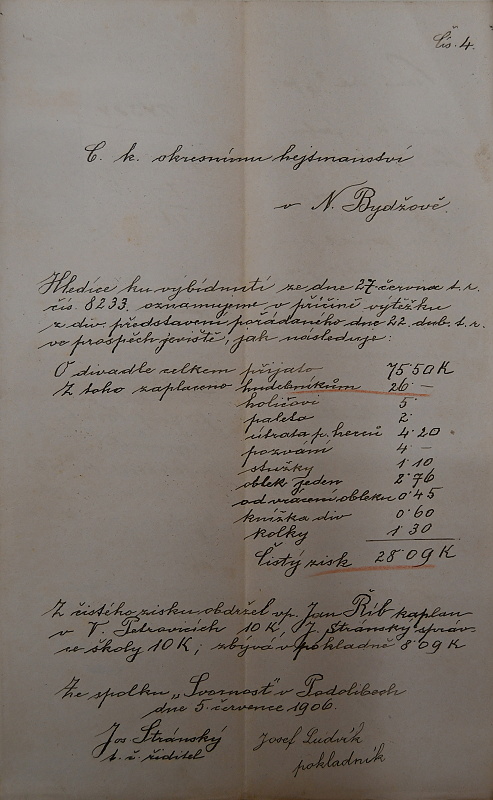 Čís. 4.
C. k. okresnímu hejtmanství
v N. Bydžově.
Hledíce ku vybídnutí ze dne 27 června t. r.
čís. 8233. oznamujeme v příčině výtěžku
z div. představení pořádaného dne 22. dub. t. r.
ve prospěch jeviště, jak následuje:
O divadle celkem přijato 75·50 K
Z toho zaplaceno hudebníkům 26 –
holičovi 5
paleta 2
útrata p. herců 4·20
pozvání 4 –
stužky 1·10
oblek jeden 2·76
od vrácení obleku 0·45
knížka div 0·60
kolky 1·30
Čistý zisk 28·09 K
Z čistého zisku obdržel vp. Jan Říb kaplan
v V. Petrovicích 10 K, J. Stránský správ-
ce školy 10 K; zbývá v pokladně 8·09 K
Ze spolku „Svornost" v Podolibech
dne 5. července 1906.
Jos. Stránský Josef Ludvík
t. č. řiditel pokladník